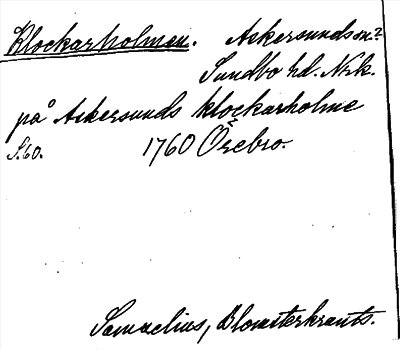 Klockarholmen. Askersunds sn?
Sundbo hd. Nrk.
på Askersunds klockarholme
S. 60. 1760 Örebro.
Samaelius, Blomsterkrants.